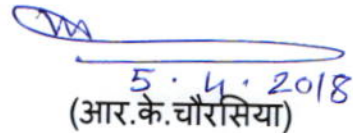 5.4.2018
(आर.के.चौरसिया)